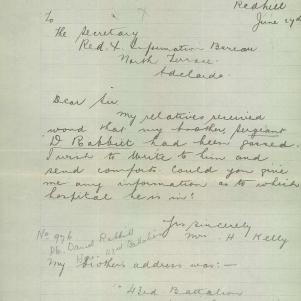 Redhill
June 27th
To
The Secretary
Red X Information Bureau
North Terrace
Adelaide.
Dear Sir
My relatives received
word that my brother Sergeant
D Rabbitt had been gassed.
I wish to write to him and
send comforts. Could you give
me any information as to which
hospital he is in?
Yrs sincerely
Mrs H Kelly
No 976
Pte. David Rabbitt
42nd Battalion
My brothers address was:—
43rd Battalion